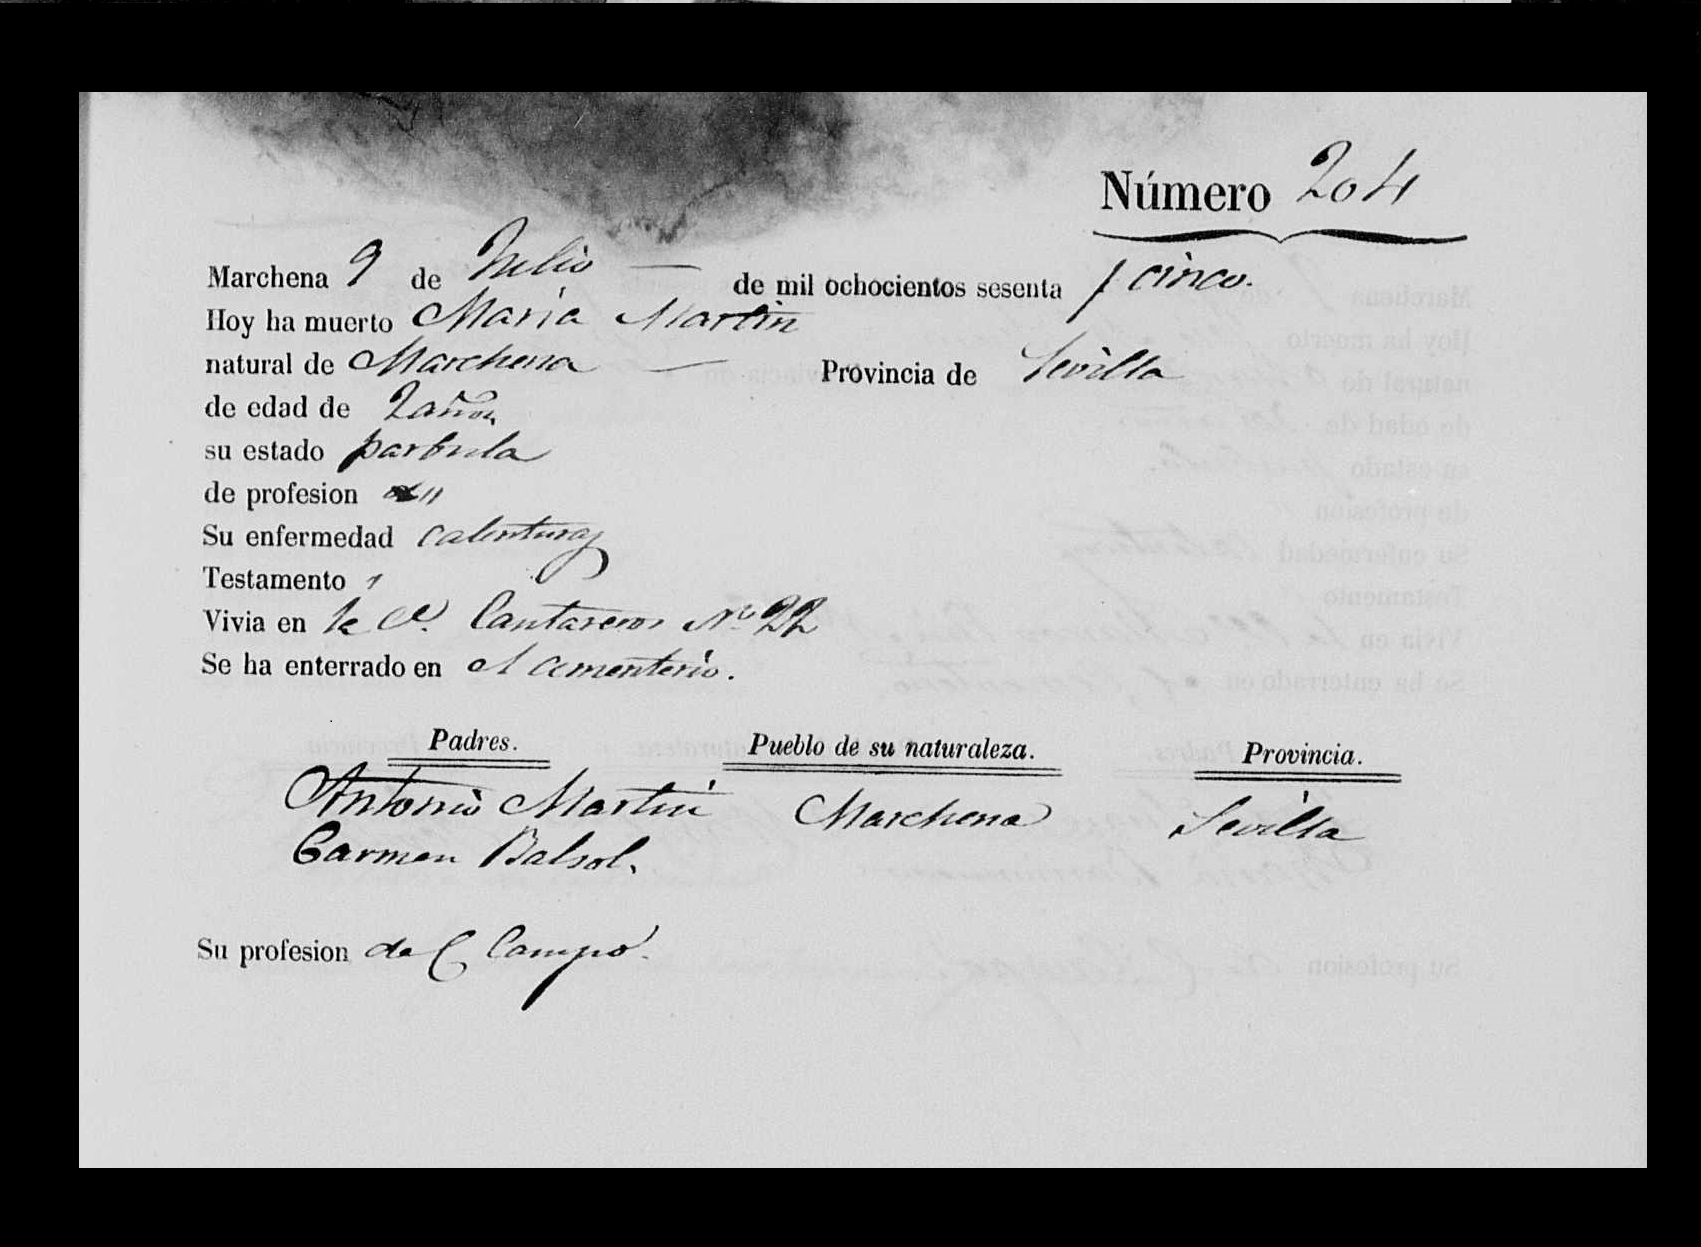 Número 204
Marchena 9 de Julio — de mil ochocientos sesenta y cinco.
Hoy ha muerto Maria Martin
natural de Marchena — Provincia de Sevilla
de edad de 2 años
su estado parbula
de profesion "
Su enfermedad calenturas
Testamento
Vivia en Cantareros Nº 22
Se ha enterrado en el cementerio.
Padres. Pueblo de su naturaleza. Provincia.
Antonio Martin Marchena Sevilla
Carmen
Su profesion del Campo.